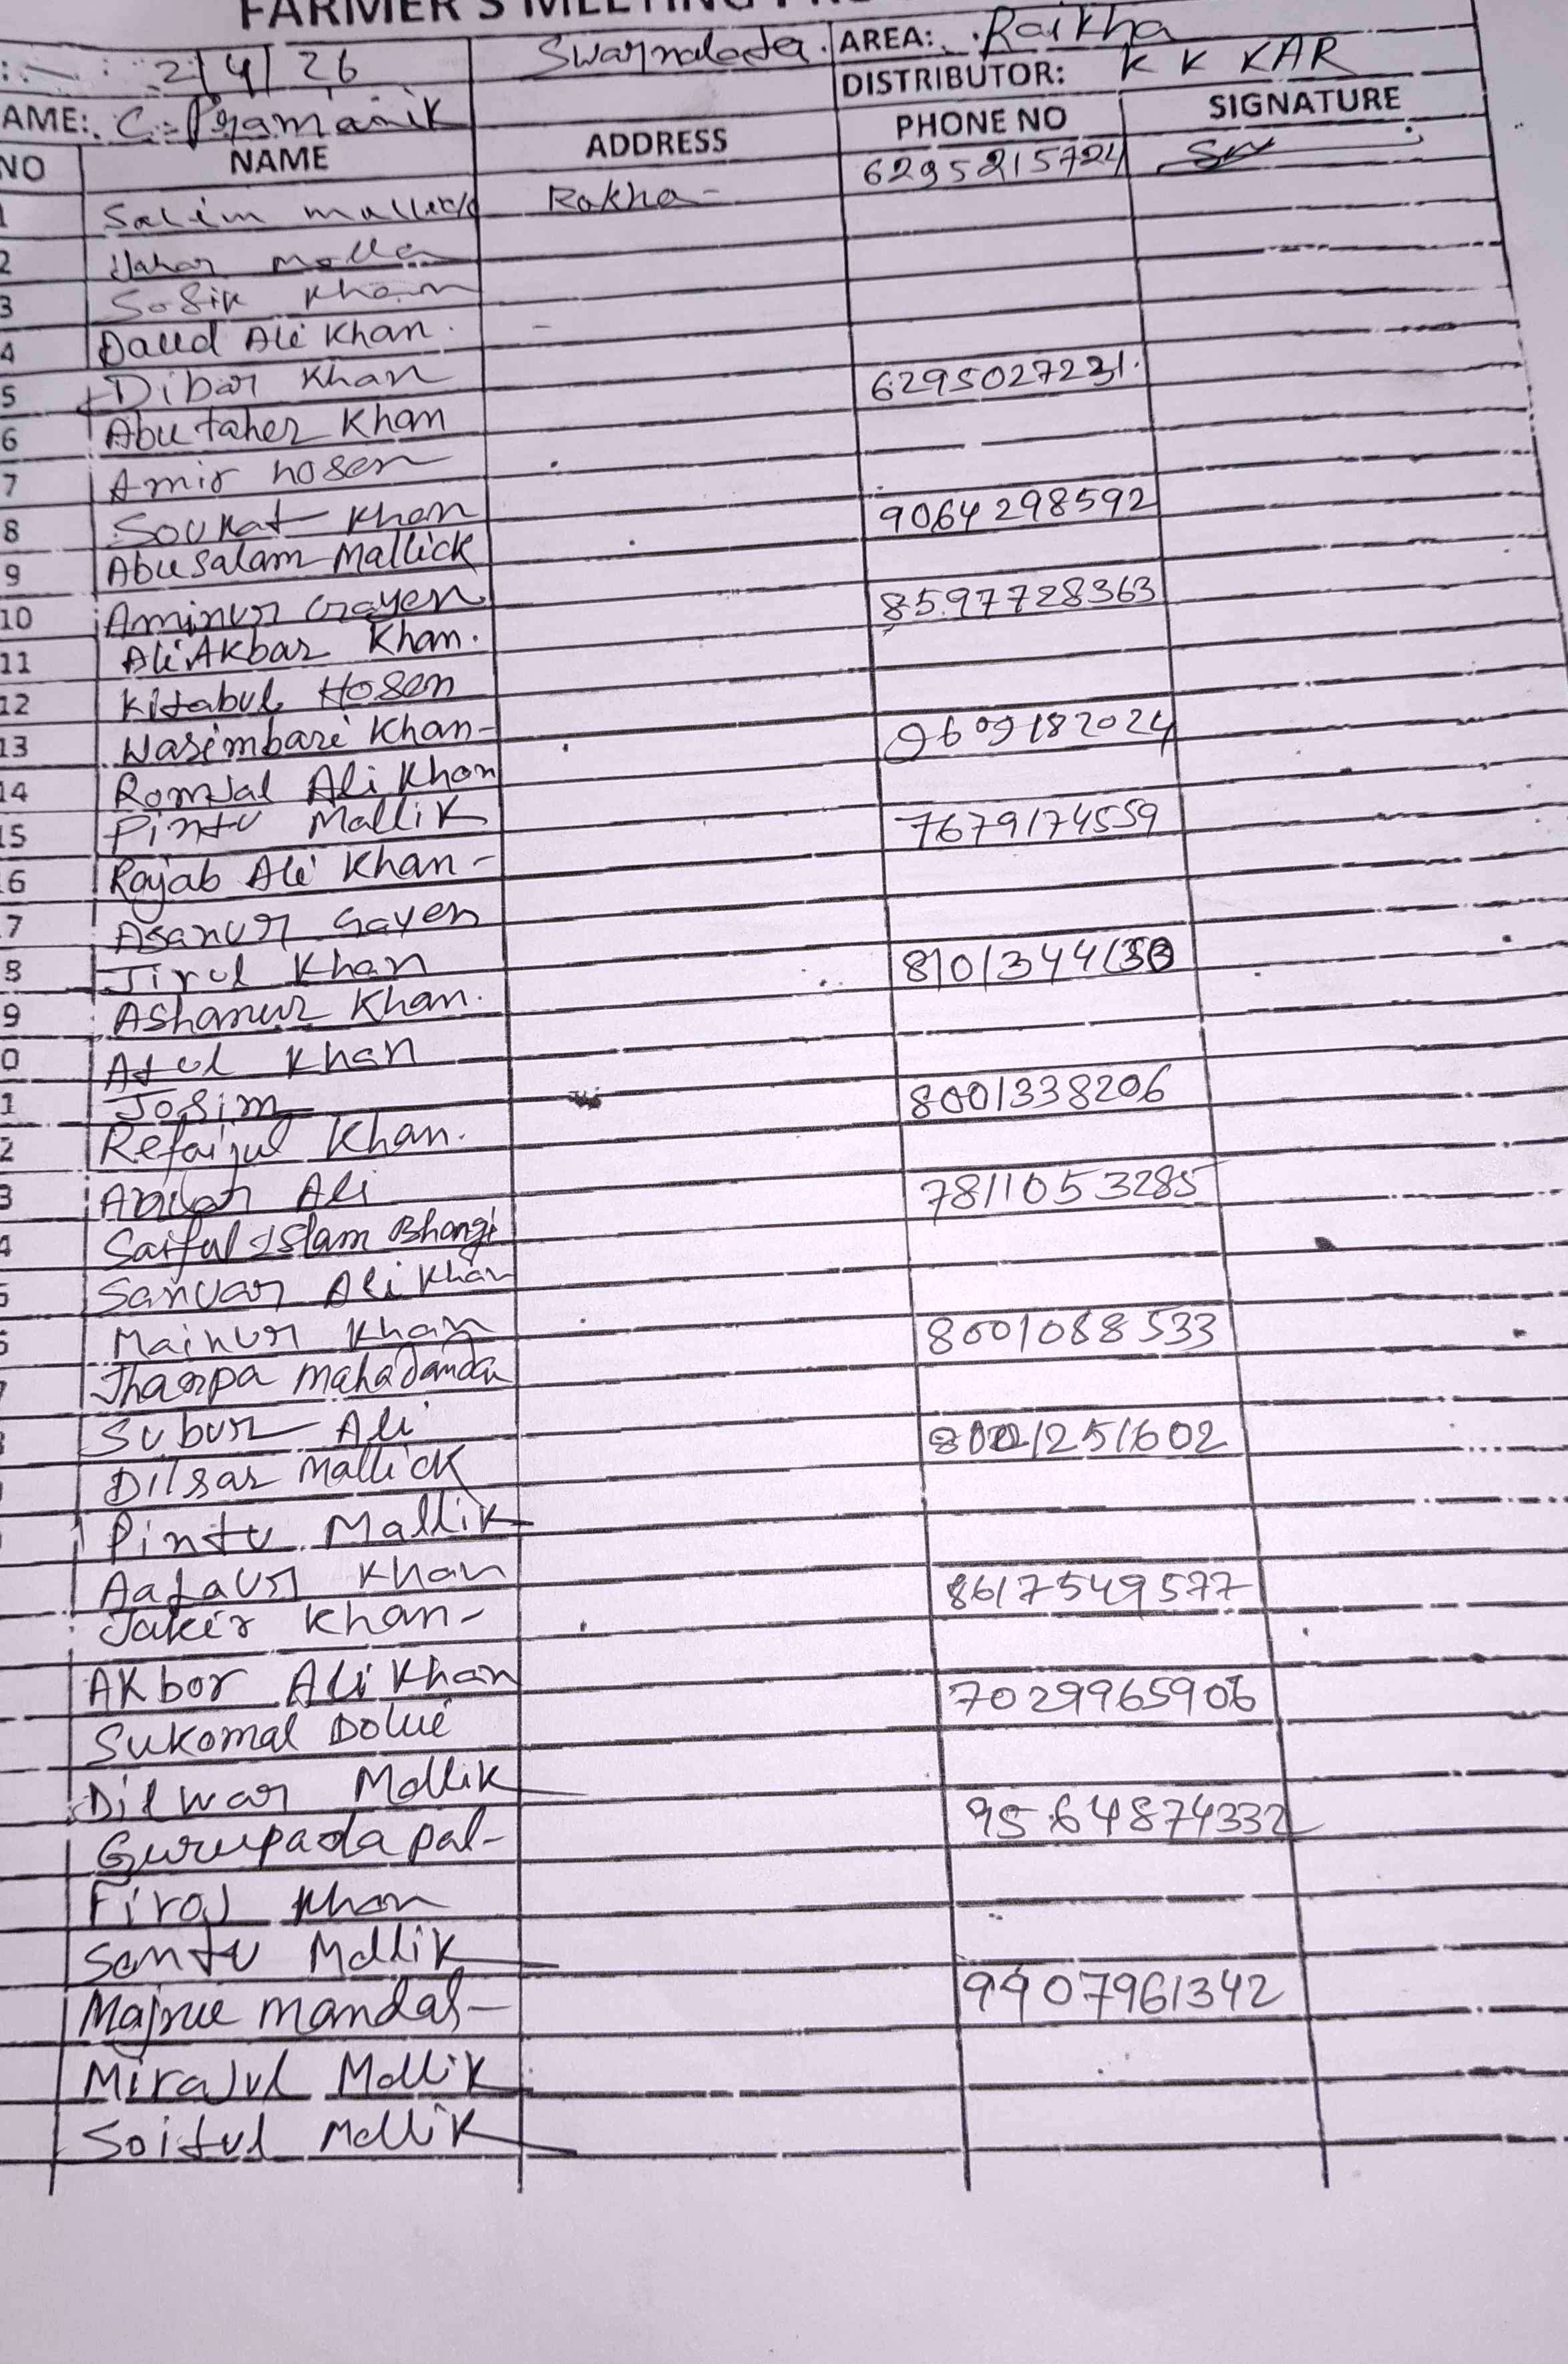 FARMER'S MEETING
2/4/26 Swarnalata. AREA: Raikha
DISTRIBUTOR: K K KAR
AME: C. Pramanik
NO NAME ADDRESS PHONE NO SIGNATURE
1 Salim Mallick Rakha- 6295215724
2 Molla
3 Sofik Khan
4 Daud Ali Khan. -
5 Dibar Khan 6295027231.
6 Abu taher Khan
7 Amir hosen
8 Soukat Khan 9064298592
9 Abusalam Mallick
10 Aminur Gayen 8597728363
11 Ali Akbar Khan.
12 Kitabul Hosen
13 Wasimbari Khan- 9609182024
14 Romjal Ali Khan
15 Pintu Mallik 7679174559
6 Rajab Ali Khan-
7 Asanur Gayen
8 Jirul Khan 8101344130
9 Ashanur Khan.
0 Atul Khan
1 Josim 8001338206
2 Refaijul Khan.
3 Ali 7811053285
4 Saiful Islam Bhangi
5 Sanuar Ali Khan
6 Mainur Khan 8001088533
7 Jharpa Mahadanda
8 Subur Ali 8001251602
Dilsar Mallick
Pintu Mallik
Aataur Khan 8617549577
Jakir Khan-
Akbor Ali Khan 7029965906
Sukomal Dolui
Dilwar Mallik 9564874332
Gurupada pal-
Firoj Khan
Santu Mallik
Majnu mandal- 9907961342
Mirajul Mallik
Soitul Mallik